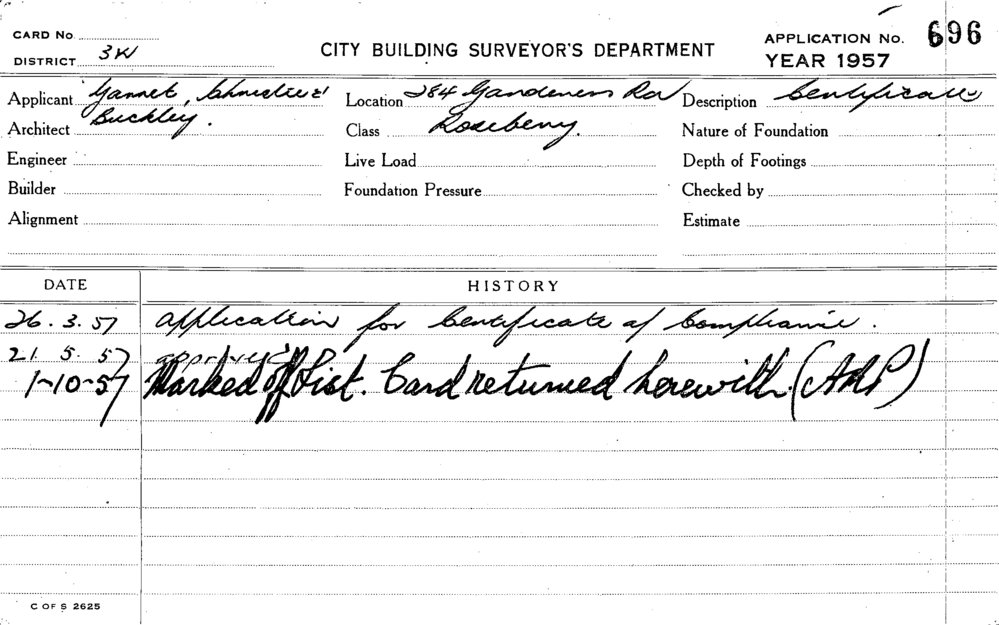 CARD No
DISTRICT 3W
CITY BUILDING SURVEYOR'S DEPARTMENT
APPLICATION No. 696
YEAR 1957
Applicant Garnet, Christie &
Buckley.
Location 284 Gardeners Rd
Rosebery.
Description Certificate
Architect
Class
Nature of Foundation
Engineer
Live Load
Depth of Footings
Builder
Foundation Pressure
Checked by
Alignment
Estimate
DATE HISTORY
26.3.57 Application for Certificate of Compliance.
21.5.57 approved
1-10-57 Marked off List. Card returned herewith. (AMP)
C OF S 2625